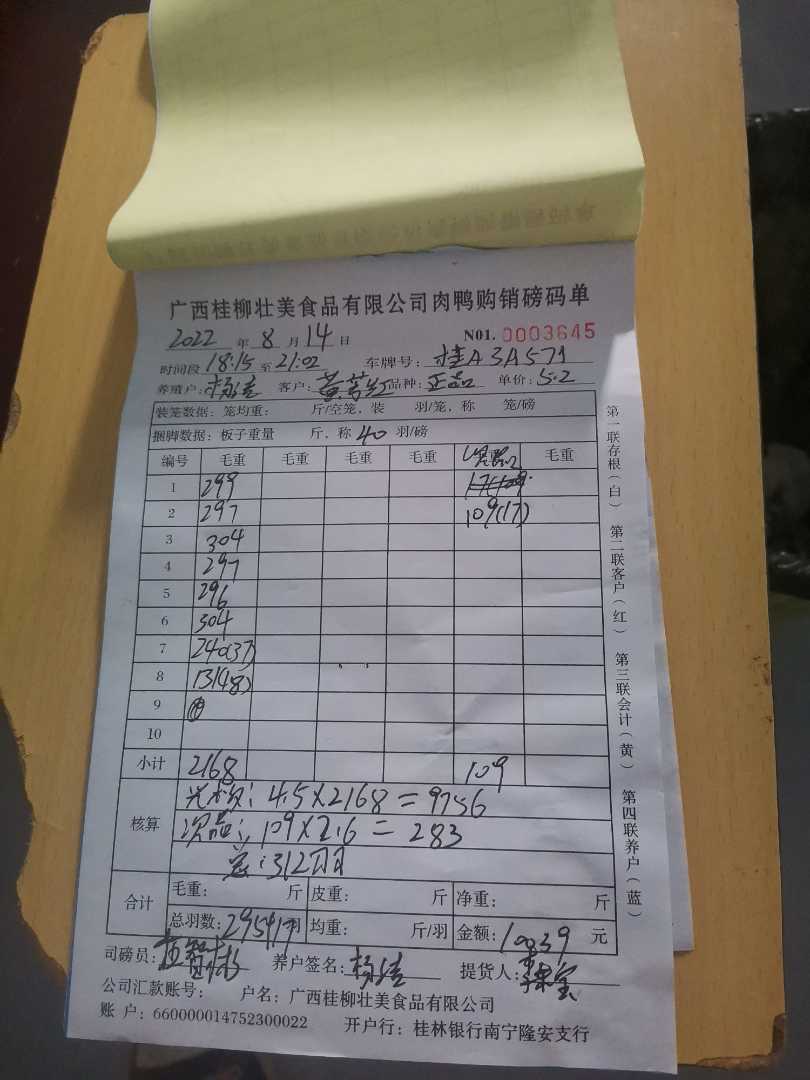 广西桂柳壮美食品有限公司肉鸭购销磅码单
2022 年 8 月 14 日 N01. 0003645
时间段 18:15 至 21:02 车牌号: 桂A3A571
养殖户: 杨 客户: 黄 品种: 正品 单价: 5.2
装笼数据: 笼均重: 斤/空笼, 装 羽/笼, 称 笼/磅
捆脚数据: 板子重量 斤, 称 40 羽/磅
编号 毛重 毛重 毛重 毛重 毛重
1 299
2 297 109(17)
3 304
4 297
5 296
6 304
7 240(37)
8 131(48)
9
10
小计 2168 109
核算 : 4.5×2168=9756
次品: 109×2.6=283
总: 312只
合计 毛重: 斤 皮重: 斤 净重: 斤
总羽数: 295+17羽 均重: 斤/羽 金额: 10039 元
司磅员: 养户签名: 杨 提货人:
公司汇款账号: 户名: 广西桂柳壮美食品有限公司
账 户: 660000014752300022 开户行: 桂林银行南宁隆安支行
第一联存根(白) 第二联客户(红) 第三联会计(黄) 第四联养户(蓝)